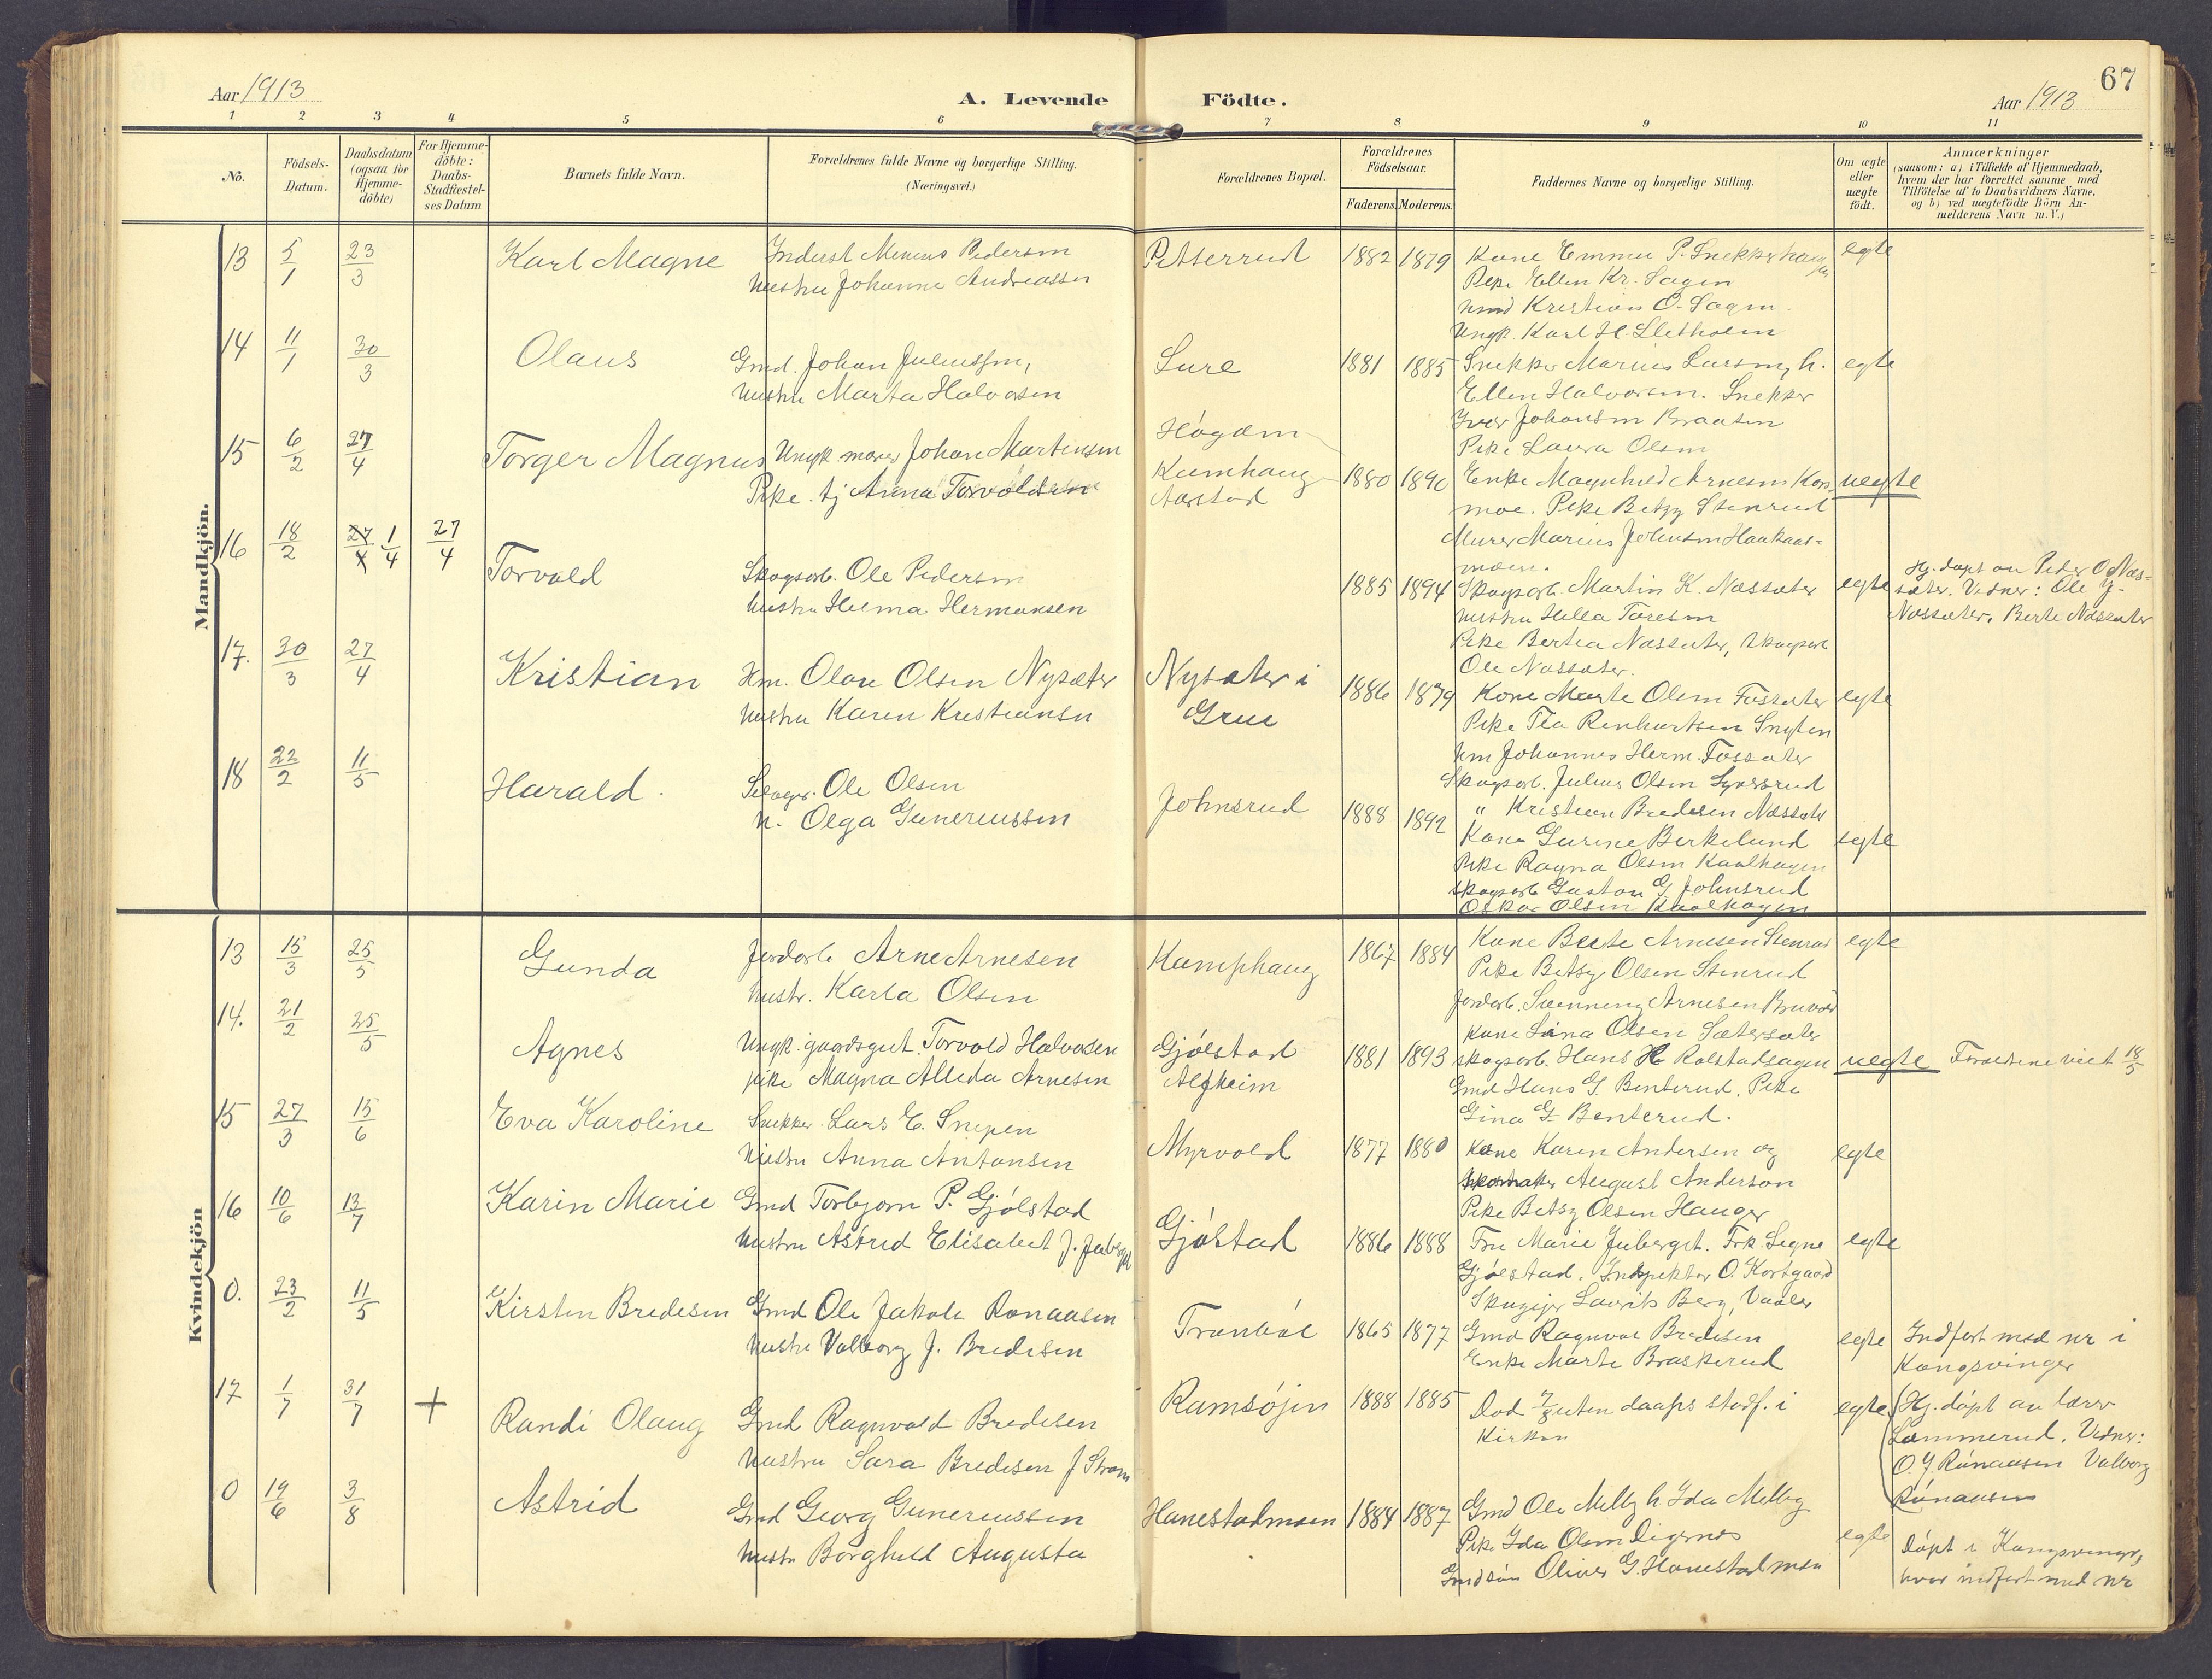 67
Aar 1913
A. Levende Födte.
Aar 1913
1 2 3 4 5 6 7 8 9 10 11
No.
Födsels-Datum.
Daabsdatum (ogsaa for Hjemme-döbte)
For Hjemme-döbte: Daabs-Stadfestel-ses Datum
Barnets fulde Navn.
Forældrenes fulde Navne og borgerlige Stilling. (Næringsvei.)
Forældrenes Bopæl.
Forældrenes Födselsaar.
Faderens. Moderens.
Faddernes Navne og borgerlige Stilling.
Om ægte eller uægte födt.
Anmærkninger
(saasom: a) i Tilfælde af Hjemmedaab, hvem der har forrettet samme med Tilföielse af to Daabsvidners Navne. og b) ved uægtefödte Börn Anmelderens Navn m.V.)
Mandkjön.
13 5/1 23/3 Karl Magne
Inderst Pedersen
hustru Johanne Andreassen
1882 1879
Kone Emma P.
egte
Pike Ellen Kr. Sagen
Kristian O. Sagen
Ungk. Karl H.
14 11/1 30/3 Olaus
Gmd. Johan Juliussen,
hustru Marta Halvorsen
Sure
1881 1885
Snekker Marius Larsen, h.
egte
Ellen Halvorsen. Snekker
Iver Johansen Braaten
Pike Laura Olsen
15 6/2 27/4 Torger Magnus
Ungk. murer Johan Martinsen
Pike tj Anna Torvaldsen
Högden
Kamphaug
Aarstad
1880 1890
Enke Magnhild Arnesen
uegte
moe. Pike Betzy Stenrud
Murer Marius Johnsen Haukaas-
moen.
16 18/2 27/4 1/4 27/4 Torvald
Skogsarb. Ole Pedersen
hustru Helma Hermansen
1885 1894
Skogsarb. Martin K. Næssæter
egte
Hj. döpt av Peder O Næs-
sæter. Vidner: Ole
Næssæter, Berte Næssæter
hustru Helle Toresen
Pike Bertea Næssæter, Skogsarb
Ole Næssæter.
17. 30/3 27/4 Kristian
Hm. Olav Olsen Nysæter
hustru Karen Kristiansen
Nysæter i
Grue
1886 1879
Kone Marte Olsen Fossæter
egte
Pike Tea
Hm Johannes Herm. Fossæter
Skogsarb. Julius Olsen
" Kristian Bredesen Næssæter
18 22/2 11/5 Harald.
Ole Olsen
h. Olga Guneriussen
Johnsrud
1888 1892
Kone Gurine Berkelund
egte
Pike Ragna Olsen Kaalhagen
Skogsarb Gustav G Johnsrud
Oskar Olsen Kaalhagen
Kvindekjön
13 15/3 25/5 Gunda
Jordarb Arne Arnesen
hustr. Karla Olsen
Kamphaug
1867 1884
Kone Beate Arnesen Stenrud
egte
Pike Betsy Olsen Stenrud
Jordarb. Svenning Arnesen
Kone Lina Olsen Sætersæter
14. 21/2 25/5 Agnes
Ungk. gaardsgut. Torvald Halvorsen
pike Magna Alleda Arnesen
Gjölstad
Alfheim
1881 1893
Skogsarb. Hans H Rolstadsagen
uegte
Forældrene viet 18/5
Gmd Hans G. Benterud. Pike
Gina G. Benterud.
15 27/3 15/6 Eva Karoline
Snekker. Lars E. Snepen
hustru Anna Antonsen
Myrvold
1877 1880
Kone Karen Andersen og
egte
August Anderson
Pike Betsy Olsen Hauger
16 10/6 13/7 Karin Marie
Gmd Torbjørn P. Gjölstad
hustru Astrid Elisabet J. Juberget
Gjölstad
1886 1888
Fru Marie Juberget. Frk. Signe
egte
Gjölstad. Inspektør O. Kortgaard
Laurits Berg, Vaaler
0. 23/2 11/5 Kirsten Bredesen
Gmd Ole Jakob Rønaasen
hustru Valborg J. Bredesen
Tranböl
1865 1877
Gmd Ragnval Bredesen
Enke Marte Braskerud
egte
Indført med nr i
Kongsvinger
17 1/7 31/7 + Randi Olaug
Gmd Ragnvald Bredesen
hustru Sara Bredesen f Strøm
Ramsöjen
1888 1885
Død 7/8 uten daaps stadf. i
Kirken
egte
Hj. döpt av lærer
Lammerud. Vidner:
O. J. Rönaasen Valborg
Rönaasen
0 19/6 3/8 Astrid
Gmd Georg Gunerussen
hustr Borghild Augusta
Hanestadmoen
1884 1887
Gmd Ole Melby h Ida Melby
Pike Ida Olsen Digernes
Gmdsøn Oliver G. Hanestadmoen
egte
Döpt i Kongsvinger,
hvor indført med nr